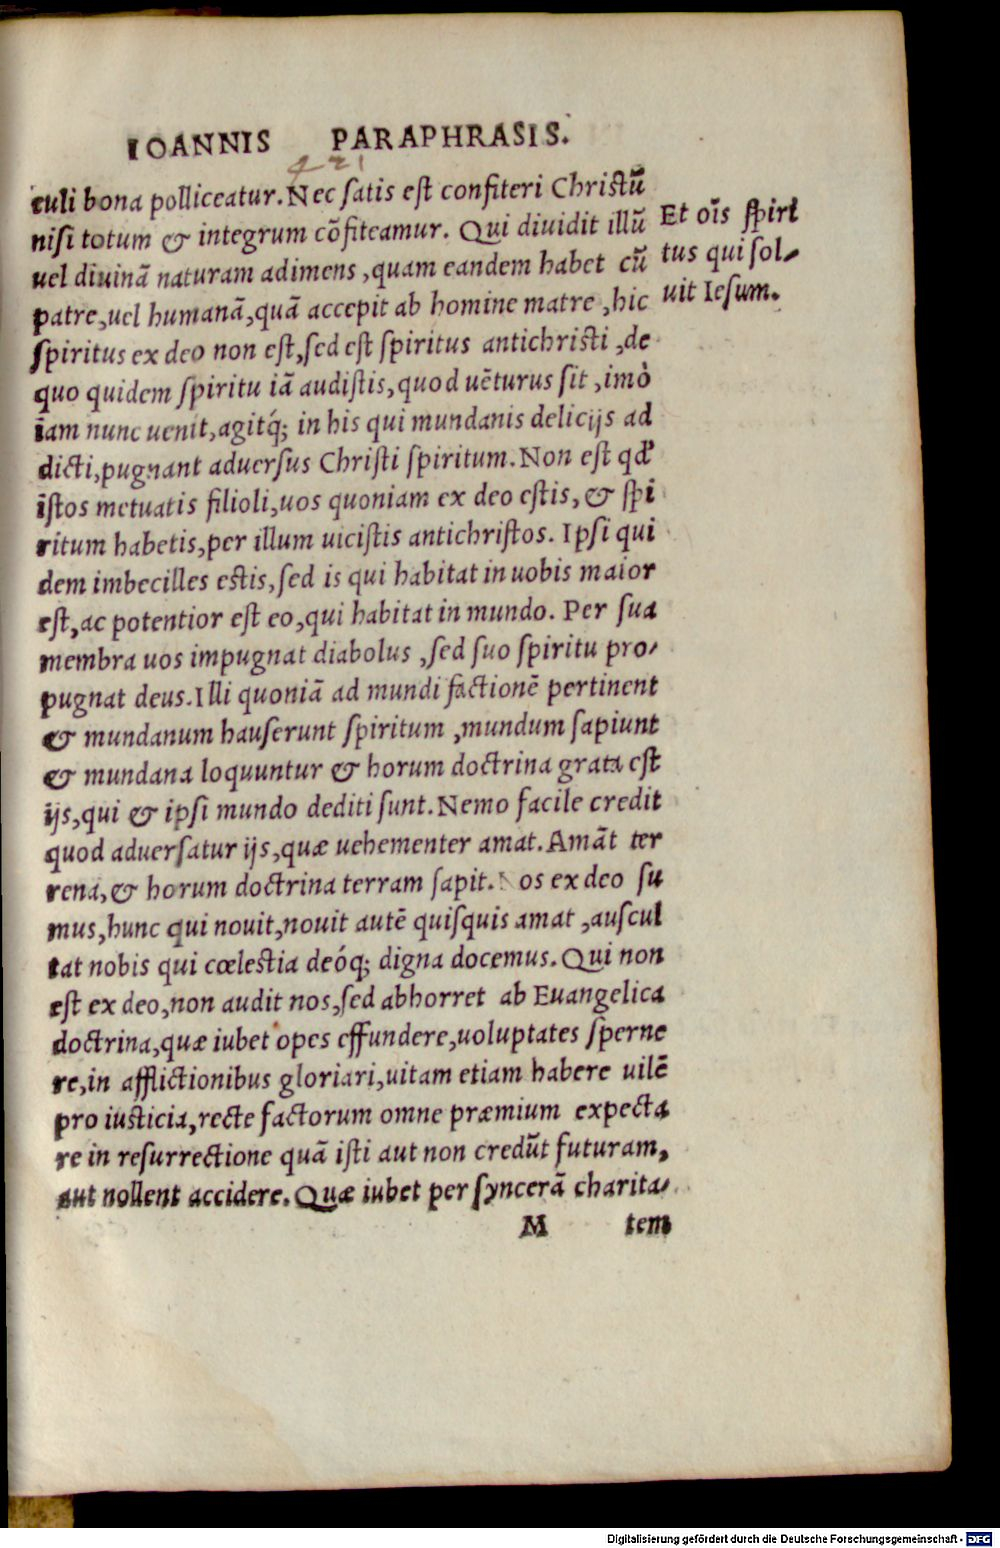 IOANNIS PARAPHRASIS.
culi bona polliceatur. Nec ſatis eſt confiteri Chriſtū
niſi totum & integrum cōfiteamur. Qui diuidit illū
uel diuinā naturam adimens, quam eandem habet cū
patre, uel humanā, quā accepit ab homine matre, hic
ſpiritus ex deo non eſt, ſed eſt ſpiritus antichriſti, de
quo quidem ſpiritu iā audiſtis, quod uēturus ſit, imò
iam nunc uenit, agitq́; in his qui mundanis delicijs ad
dicti, pugnant aduerſus Chriſti ſpiritum. Non eſt qd'
iſtos metuatis filioli, uos quoniam ex deo eſtis, & ſpi
ritum habetis, per illum uiciſtis antichriſtos. Ipſi qui
dem imbecilles eſtis, ſed is qui habitat in uobis maior
eſt, ac potentior eſt eo, qui habitat in mundo. Per ſua
membra uos impugnat diabolus, ſed ſuo ſpiritu pro-
pugnat deus. Illi quoniā ad mundi factionē pertinent
& mundanum hauſerunt ſpiritum, mundum ſapiunt
& mundana loquuntur & horum doctrina grata eſt
ijs, qui & ipſi mundo dediti ſunt. Nemo facile credit
quod aduerſatur ijs, quæ uehementer amat. Amāt ter
rena, & horum doctrina terram ſapit. Nos ex deo ſu
mus, hunc qui nouit, nouit autē quiſquis amat, auſcul
tat nobis qui cœleſtia deóq; digna docemus. Qui non
eſt ex deo, non audit nos, ſed abhorret ab Euangelica
doctrina, quæ iubet opes effundere, uoluptates ſperne
re, in afflictionibus gloriari, uitam etiam habere uilē
pro iuſticia, recte factorum omne præmium expecta
re in reſurrectione quā iſti aut non credūt futuram,
aut nollent accidere. Quæ iubet per ſyncerā charita-
M tem
Et oīs ſpiri
tus qui ſol-
uit Ieſum.
Digitalisierung gefördert durch die Deutsche Forschungsgemeinschaft - DFG